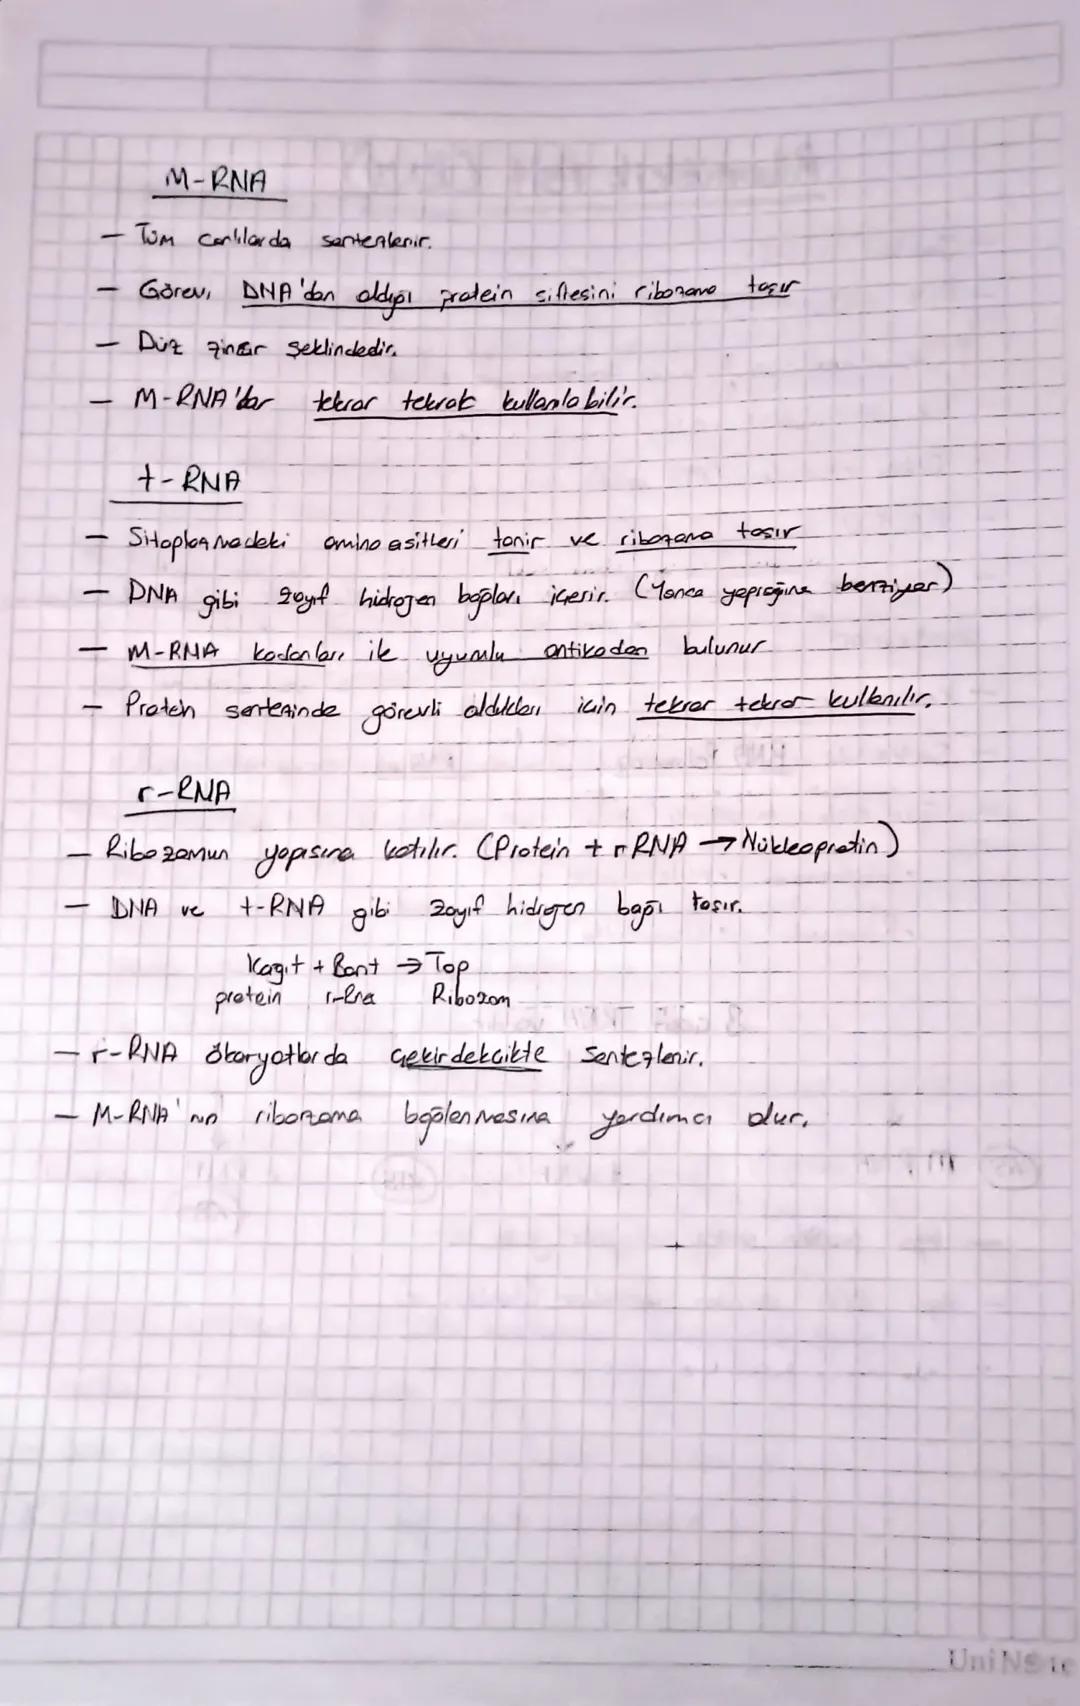 M-RNA
- Tüm canlılarda sentezlenir.
- Görevi DNA'dan aldığı protein şifresini ribozoma taşır
- Düz zincir şeklindedir.
- M-RNA'lar tekrar tekrar kullanılabilir.
t-RNA
- Sitoplazmadaki amino asitleri tanır ve ribozoma taşır
- DNA gibi zayıf hidrojen bağları içerir. (Yonca yaprağına benziyor)
- M-RNA kodonları ile uyumlu antikodon bulunur
- Protein sentezinde görevli oldukları için tekrar tekrar kullanılır.
r-RNA
- Ribozomun yapısına katılır. (Protein + r RNA → Nükleoprotin)
- DNA ve t-RNA gibi zayıf hidrojen bağı taşır.
Kağıt + Bant → Top
protein r-Rna Ribozom
- r-RNA ökaryotlarda çekirdekcikte sentezlenir.
- M-RNA'nın ribozoma bağlanmasına yardımcı olur.